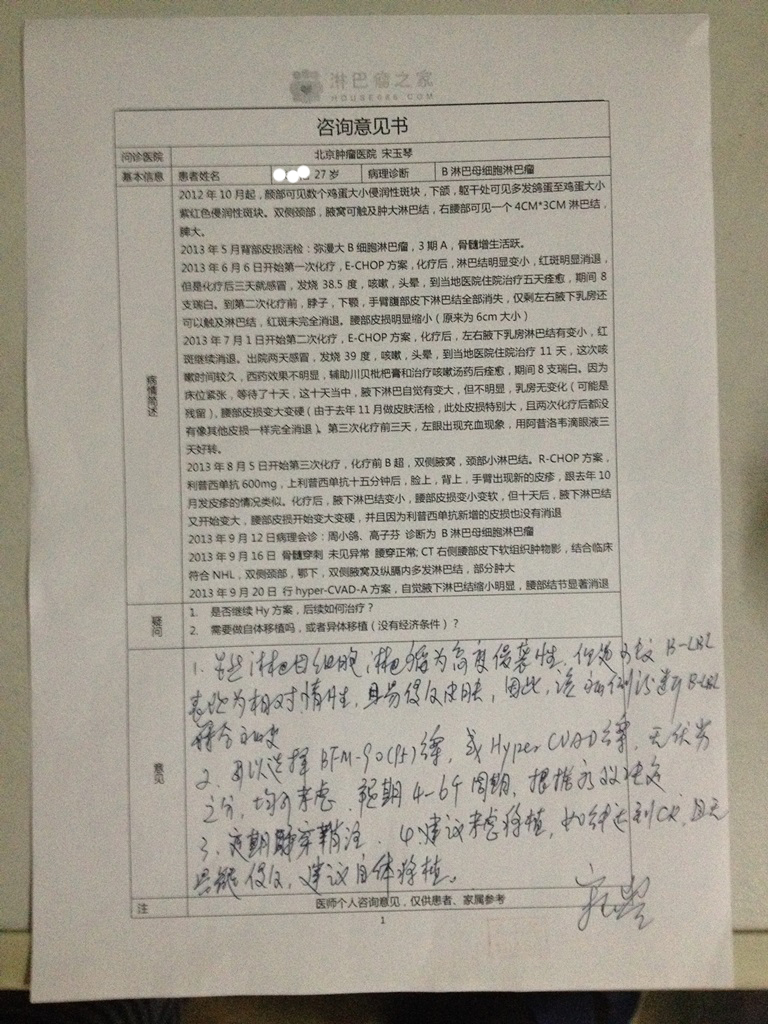 淋巴瘤之家
HOUSE086.COM
咨询意见书
问诊医院 北京肿瘤医院 宋玉琴
基本信息 患者姓名 27 岁 病理诊断 B 淋巴母细胞淋巴瘤
病情简述
2012 年 10 月起，颜部可见数个鸡蛋大小侵润性斑块，下颌，躯干处可见多发鸽蛋至鸡蛋大小
紫红色侵润性斑块。双侧颈部，腋窝可触及肿大淋巴结，右腰部可见一个 4CM*3CM 淋巴结，
脾大。
2013 年 5 月背部皮损活检：弥漫大 B 细胞淋巴瘤，3 期 A，骨髓增生活跃。
2013 年 6 月 6 日开始第一次化疗，E-CHOP 方案，化疗后，淋巴结明显变小，红斑明显消退，
但是化疗后三天就感冒，发烧 38.5 度，咳嗽，头晕，到当地医院住院治疗五天痊愈，期间 8
支瑞白。到第二次化疗前，脖子，下颚，手臂腹部皮下淋巴结全部消失，仅剩左右腋下乳房还
可以触及淋巴结，红斑未完全消退。腰部皮损明显缩小（原来为 6cm 大小）
2013 年 7 月 1 日开始第二次化疗，E-CHOP 方案，化疗后，左右腋下乳房淋巴结有变小，红
斑继续消退。出院两天感冒，发烧 39 度，咳嗽，头晕，到当地医院住院治疗 11 天，这次咳
嗽时间较久，西药效果不明显，辅助川贝枇杷膏和治疗咳嗽汤药后痊愈，期间 8 支瑞白。因为
床位紧张，等待了十天，这十天当中，腋下淋巴自觉有变大，但不明显，乳房无变化（可能是
残留），腰部皮损变大变硬（由于去年 11 月做皮肤活检，此处皮损特别大，且两次化疗后都没
有像其他皮损一样完全消退）。第三次化疗前三天，左眼出现充血现象，用阿昔洛韦滴眼液三
天好转。
2013 年 8 月 5 日开始第三次化疗，化疗前 B 超，双侧腋窝，颈部小淋巴结。R-CHOP 方案，
利普西单抗 600mg，上利普西单抗十五分钟后，脸上，背上，手臂出现新的皮疹，跟去年 10
月发皮疹的情况类似。化疗后，腋下淋巴结变小，腰部皮损变小变软，但十天后，腋下淋巴结
又开始变大，腰部皮损开始变大变硬，并且因为利普西单抗新增的皮损也没有消退
2013 年 9 月 12 日病理会诊：周小鸽、高子芬 诊断为 B 淋巴母细胞淋巴瘤
2013 年 9 月 16 日 骨髓穿刺 未见异常 腰穿正常; CT 右侧腰部皮下软组织肿物影，结合临床
符合 NHL，双侧颈部，鄂下，双侧腋窝及纵膈内多发淋巴结，部分肿大
2013 年 9 月 20 日 行 hyper-CVAD-A 方案，自觉腋下淋巴结缩小明显，腰部结节显著消退
疑问
1. 是否继续 Hy 方案，后续如何治疗？
2. 需要做自体移植吗，或者异体移植（没有经济条件）？
意见
1. 淋巴母细胞淋巴瘤为高度侵袭性，但是 B-LBL
为相对惰性，且易侵及皮肤，因此，该病例诊断 B-LBL
符合
2. 可以选择 BFM-90 方案，或 Hyper CVAD 方案，无优劣
之分，均可考虑，预期 4-6个周期，根据疗效决定
3. 定期腰穿鞘注。4. 建议考虑移植，如能达到CR，且无
骨髓侵及，建议自体移植。
注 医师个人咨询意见，仅供患者、家属参考
1